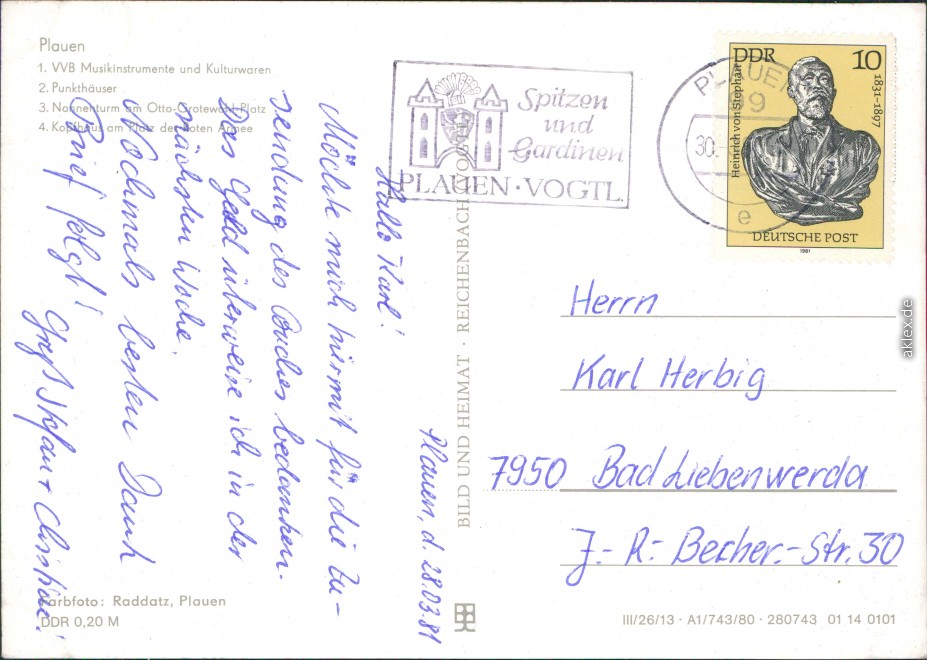 Plauen
1. VVB Musikinstrumente und Kulturwaren
2. Punkthäuser
3. Nonnenturm am Otto-Grotewohl-Platz
4. Kopfbau am Platz der Roten Armee
Plauen, d. 28.03.81
Hallo Karl!
Möchte mich hiermit für die Zu-
sendung des Buches bedanken.
Das Geld überweise ich in der
nächsten Woche.
Nochmals besten Dank
Brief folgt!
Gruß Stefan + Christine!
Farbfoto: Raddatz, Plauen
DDR 0,20 M
BILD UND HEIMAT · REICHENBACH
Spitzen
und
Gardinen
PLAUEN · VOGTL.
PLAUEN
99
30.
e
DDR 10
Heinrich von Stephan
1831-1897
DEUTSCHE POST
1981
Herrn
Karl Herbig
7950 Bad Liebenwerda
J.-R.-Becher.-Str. 30
III/26/13 · A1/743/80 · 280743 01 14 0101
aklex.de